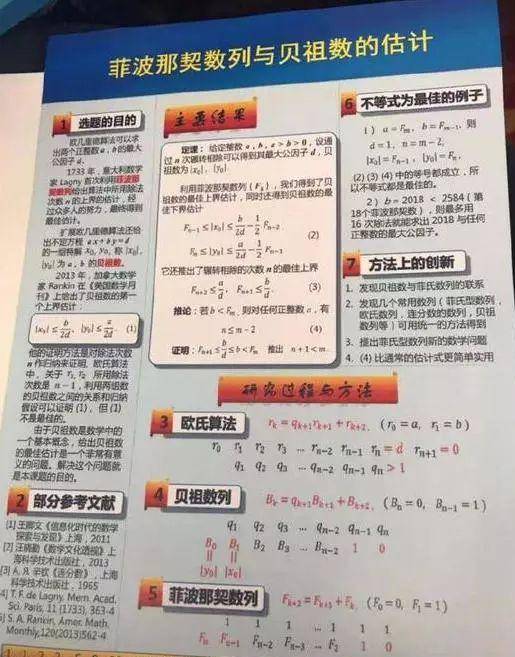 菲波那契数列与贝祖数的估计
1 选题的目的
欧几里德算法可以求
出两个正整数 a, b 的最大
公因子 d.
1733 年, 意大利数学
家 Lagny 首次利用菲波那
契数列给出算法中所用除法
次数 n 的上界的估计, 经
过众多人的努力, 最终得到
最佳估计.
扩展欧几里德算法还给
出不定方程 ax+by=d
的一组特解 x₀, y₀, 称 |x₀|,
|y₀| 为 a, b 的贝祖数.
2013 年, 加拿大数学
家 Rankin 在《美国数学月
刊》上给出了贝祖数的第一
个上界估计:
|x₀| ≤ b/2d, |y₀| ≤ a/2d. (1)
他的证明方法是对除法次数
n 作归纳来证明, 欧几里德算法
中, 关于 r₁, r₂ 所用除法
次数是 n − 1, 利用两组数
的贝祖数之间的关系和归纳
假设可以证明 (1), 但 (1)
不是最佳的.
由于贝祖数是数学中的
一个基本概念, 给出贝祖数
的最佳估计是一个非常有意
义的问题. 解决这个问题就
是本课题的目的.
2 部分参考文献
[1] 王卿文《信息化时代的数学
探索与发现》上海, 2011
[2] 汪晓勤《数学文化透视》上
海科学技术出版社, 2013
[3] A. Я. 辛钦《连分数》, 上海
科学技术出版社, 1965
[4] T. F. de Lagny. Mem. Acad.
Sci. Paris, 11 (1733), 363-4
[5] S. A. Rankin, Amer. Math.
Monthly,120(2013)562-4
主要结果
定理: 给定整数 a, b, a > b > 0, 设通
过 n 次辗转相除可以得到其最大公因子 d, 贝
祖数为 |x₀|, |y₀|.
利用菲波那契数列 {Fₖ}, 我们得到了贝
祖数的最佳上界估计, 同时还得到贝祖数的最
佳下界估计
Fₙ₋₁ ≤ |x₀| ≤ b/2d − 1/2 Fₙ₋₂
(2)
Fₙ ≤ |y₀| ≤ a/2d − 1/2 Fₙ₋₁
它还推出了辗转相除的次数 n 的最佳上界
Fₙ₊₂ ≤ a/d, Fₙ₊₁ ≤ b/d. (3)
推论: 若 b < Fₘ, 则对任何正整数 a, 有
n ≤ m − 2 (4)
证明: Fₙ₊₁ ≤ b/d ≤ b < Fₘ 推出 n + 1 < m.
6 不等式为最佳的例子
1) a = Fₘ, b = Fₘ₋₁, 则
d = 1, n = m − 2,
|x₀| = Fₙ₋₁, |y₀| = Fₙ,
(2) (3) (4) 中的等号都成立, 所
以不等式都是最佳的.
2) b = 2018 < 2584 (第
18个菲波那契数), 则最多用
16 次除法就能求出 2018 与任何
正整数的最大公因子.
7 方法上的创新
1. 发现贝祖数与菲氏数列的联系
2. 发现几个常用数列 (菲氏型数列,
欧氏数列, 连分数的数列, 贝祖
数列等) 可用统一的方法得到
3. 提出菲氏型数列新的数学问题
4. (4) 比通常的估计式更简单实用
研究过程与方法
3 欧氏算法 rₖ = qₖ₊₁rₖ₊₁ + rₖ₊₂, (r₀ = a, r₁ = b)
r₀ r₁ r₂ r₃ ... rₙ₋₂ rₙ₋₁ rₙ = d rₙ₊₁ = 0
q₁ q₂ q₃ ... qₙ₋₂ qₙ₋₁ qₙ > 1
4 贝祖数列 Bₖ = qₖ₊₁Bₖ₊₁ + Bₖ₊₂, (Bₙ = 0, Bₙ₋₁ = 1)
q₁ q₂ q₃ ... qₙ₋₂ qₙ₋₁ qₙ
B₀ B₁ B₂ B₃ ... Bₙ₋₂ 1 0
|y₀| |x₀|
5 菲波那契数列 Fₖ₊₂ = Fₖ₊₁ + Fₖ, (F₀ = 0, F₁ = 1)
1 1 1 ... 1 1 1
Fₙ Fₙ₋₁ Fₙ₋₂ Fₙ₋₃ ... F₂ 1 0